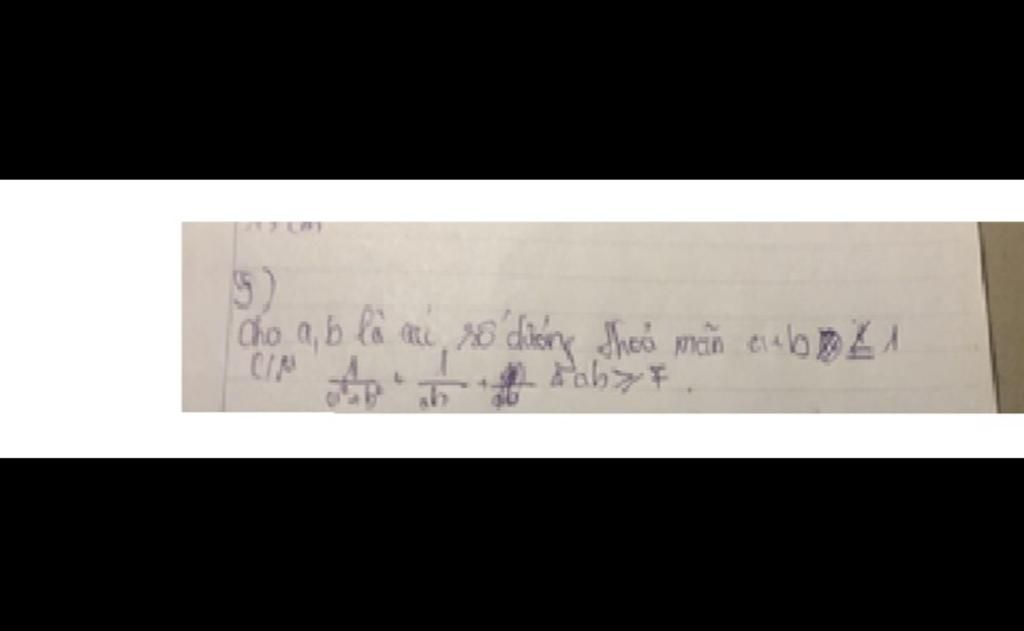 5)
Cho a, b là các số dương thoả mãn a+b ≤ 1
C/M 1/(a²+b²) + 1/ab + 8ab ≥ 7.